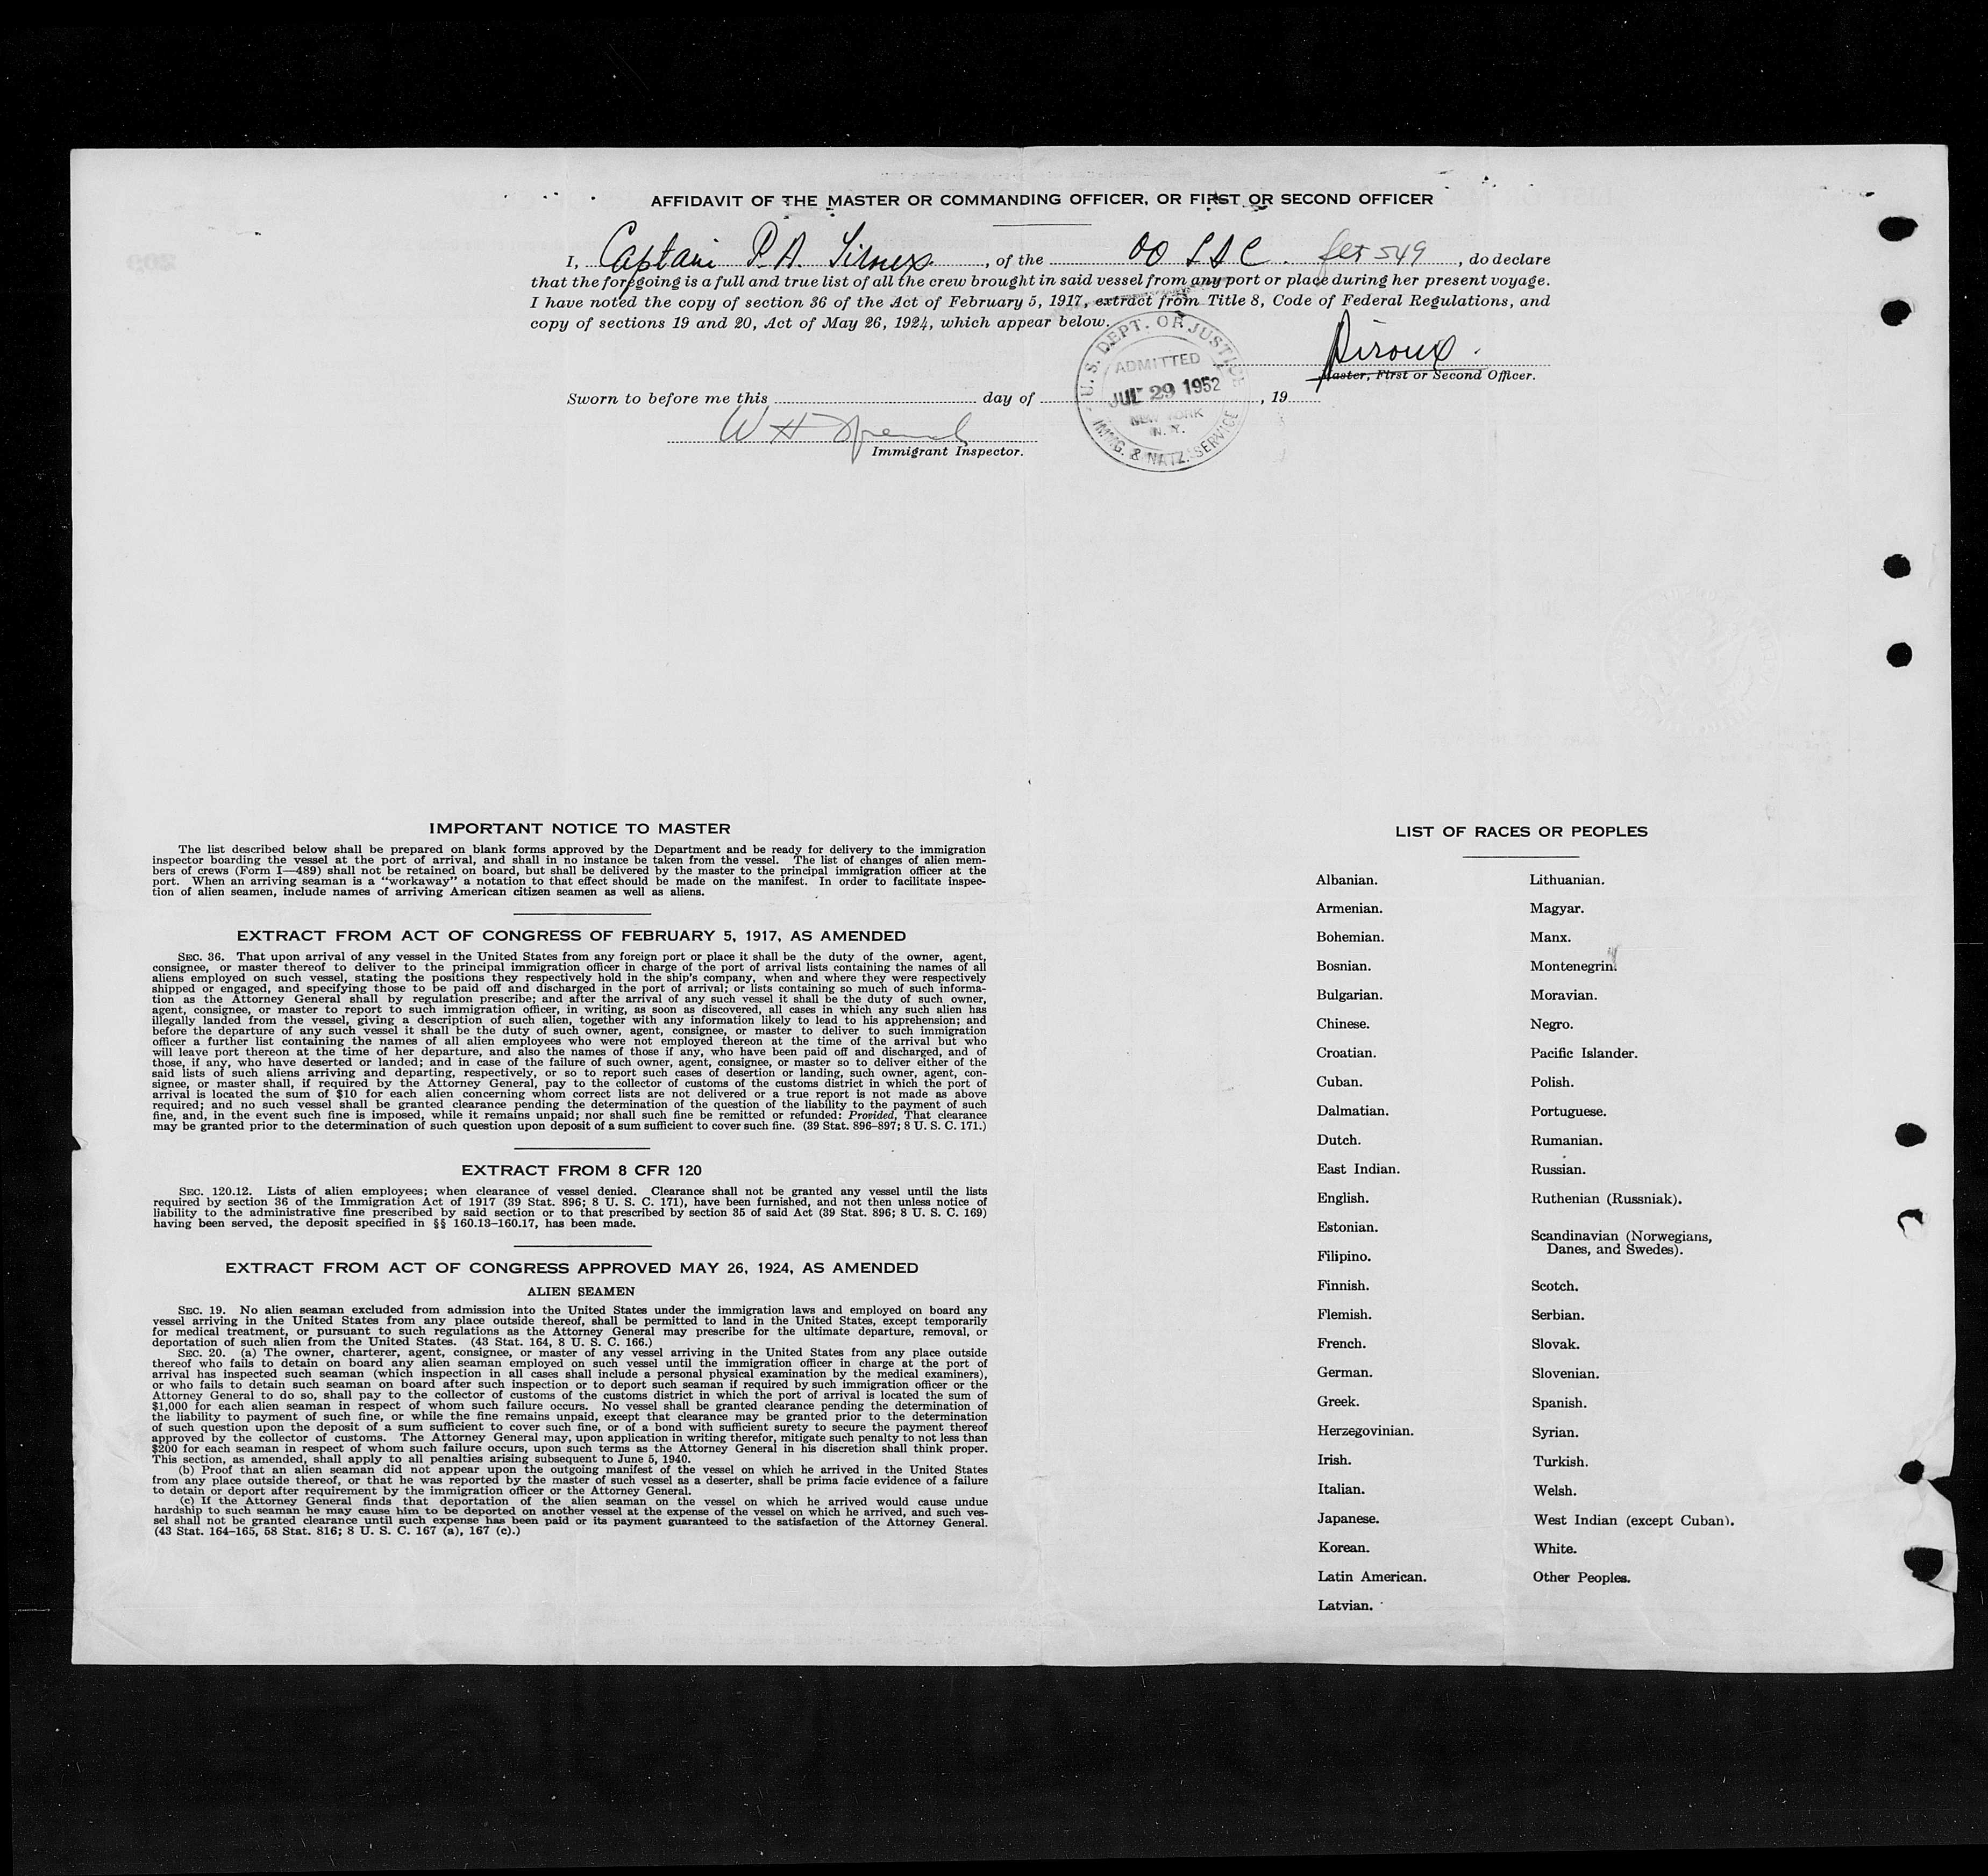 AFFIDAVIT OF THE MASTER OR COMMANDING OFFICER, OR FIRST OR SECOND OFFICER
I, Captain P. A. Siroux, of the OO SDC flt 549, do declare
that the foregoing is a full and true list of all the crew brought in said vessel from any port or place during her present voyage.
I have noted the copy of section 36 of the Act of February 5, 1917, extract from Title 8, Code of Federal Regulations, and
copy of sections 19 and 20, Act of May 26, 1924, which appear below.
U. S. DEPT. OF JUSTICE
ADMITTED
JUL 29 1952
NEW YORK
N. Y.
IMMIG. & NATZ. SERVICE
Siroux
Master, First or Second Officer.
Sworn to before me this day of , 19
W H
Immigrant Inspector.
IMPORTANT NOTICE TO MASTER
The list described below shall be prepared on blank forms approved by the Department and be ready for delivery to the immigration
inspector boarding the vessel at the port of arrival, and shall in no instance be taken from the vessel. The list of changes of alien mem-
bers of crews (Form I—489) shall not be retained on board, but shall be delivered by the master to the principal immigration officer at the
port. When an arriving seaman is a “workaway” a notation to that effect should be made on the manifest. In order to facilitate inspec-
tion of alien seamen, include names of arriving American citizen seamen as well as aliens.
EXTRACT FROM ACT OF CONGRESS OF FEBRUARY 5, 1917, AS AMENDED
SEC. 36. That upon arrival of any vessel in the United States from any foreign port or place it shall be the duty of the owner, agent,
consignee, or master thereof to deliver to the principal immigration officer in charge of the port of arrival lists containing the names of all
aliens employed on such vessel, stating the positions they respectively hold in the ship’s company, when and where they were respectively
shipped or engaged, and specifying those to be paid off and discharged in the port of arrival; or lists containing so much of such informa-
tion as the Attorney General shall by regulation prescribe; and after the arrival of any such vessel it shall be the duty of such owner,
agent, consignee, or master to report to such immigration officer, in writing, as soon as discovered, all cases in which any such alien has
illegally landed from the vessel, giving a description of such alien, together with any information likely to lead to his apprehension; and
before the departure of any such vessel it shall be the duty of such owner, agent, consignee, or master to deliver to such immigration
officer a further list containing the names of all alien employees who were not employed thereon at the time of the arrival but who
will leave port thereon at the time of her departure, and also the names of those if any, who have been paid off and discharged, and of
those, if any, who have deserted or landed; and in case of the failure of such owner, agent, consignee, or master so to deliver either of the
said lists of such aliens arriving and departing, respectively, or so to report such cases of desertion or landing, such owner, agent, con-
signee, or master shall, if required by the Attorney General, pay to the collector of customs of the customs district in which the port of
arrival is located the sum of $10 for each alien concerning whom correct lists are not delivered or a true report is not made as above
required; and no such vessel shall be granted clearance pending the determination of the question of the liability to the payment of such
fine, and, in the event such fine is imposed, while it remains unpaid; nor shall such fine be remitted or refunded: Provided, That clearance
may be granted prior to the determination of such question upon deposit of a sum sufficient to cover such fine. (39 Stat. 896–897; 8 U. S. C. 171.)
EXTRACT FROM 8 CFR 120
SEC. 120.12. Lists of alien employees; when clearance of vessel denied. Clearance shall not be granted any vessel until the lists
required by section 36 of the Immigration Act of 1917 (39 Stat. 896; 8 U. S. C. 171), have been furnished, and not then unless notice of
liability to the administrative fine prescribed by said section or to that prescribed by section 35 of said Act (39 Stat. 896; 8 U. S. C. 169)
having been served, the deposit specified in §§ 160.13–160.17, has been made.
EXTRACT FROM ACT OF CONGRESS APPROVED MAY 26, 1924, AS AMENDED
ALIEN SEAMEN
SEC. 19. No alien seaman excluded from admission into the United States under the immigration laws and employed on board any
vessel arriving in the United States from any place outside thereof, shall be permitted to land in the United States, except temporarily
for medical treatment, or pursuant to such regulations as the Attorney General may prescribe for the ultimate departure, removal, or
deportation of such alien from the United States. (43 Stat. 164, 8 U. S. C. 166.)
SEC. 20. (a) The owner, charterer, agent, consignee, or master of any vessel arriving in the United States from any place outside
thereof who fails to detain on board any alien seaman employed on such vessel until the immigration officer in charge at the port of
arrival has inspected such seaman (which inspection in all cases shall include a personal physical examination by the medical examiners),
or who fails to detain such seaman on board after such inspection or to deport such seaman if required by such immigration officer or the
Attorney General to do so, shall pay to the collector of customs of the customs district in which the port of arrival is located the sum of
$1,000 for each alien seaman in respect of whom such failure occurs. No vessel shall be granted clearance pending the determination of
the liability to payment of such fine, or while the fine remains unpaid, except that clearance may be granted prior to the determination
of such question upon the deposit of a sum sufficient to cover such fine, or of a bond with sufficient surety to secure the payment thereof
approved by the collector of customs. The Attorney General may, upon application in writing therefor, mitigate such penalty to not less than
$200 for each seaman in respect of whom such failure occurs, upon such terms as the Attorney General in his discretion shall think proper.
This section, as amended, shall apply to all penalties arising subsequent to June 5, 1940.
(b) Proof that an alien seaman did not appear upon the outgoing manifest of the vessel on which he arrived in the United States
from any place outside thereof, or that he was reported by the master of such vessel as a deserter, shall be prima facie evidence of a failure
to detain or deport after requirement by the immigration officer or the Attorney General.
(c) If the Attorney General finds that deportation of the alien seaman on the vessel on which he arrived would cause undue
hardship to such seaman he may cause him to be deported on another vessel at the expense of the vessel on which he arrived, and such ves-
sel shall not be granted clearance until such expense has been paid or its payment guaranteed to the satisfaction of the Attorney General.
(43 Stat. 164–165, 58 Stat. 816; 8 U. S. C. 167 (a), 167 (c).)
LIST OF RACES OR PEOPLES
Albanian.
Armenian.
Bohemian.
Bosnian.
Bulgarian.
Chinese.
Croatian.
Cuban.
Dalmatian.
Dutch.
East Indian.
English.
Estonian.
Filipino.
Finnish.
Flemish.
French.
German.
Greek.
Herzegovinian.
Irish.
Italian.
Japanese.
Korean.
Latin American.
Latvian.
Lithuanian.
Magyar.
Manx.
Montenegrin.
Moravian.
Negro.
Pacific Islander.
Polish.
Portuguese.
Rumanian.
Russian.
Ruthenian (Russniak).
Scandinavian (Norwegians,
Danes, and Swedes).
Scotch.
Serbian.
Slovak.
Slovenian.
Spanish.
Syrian.
Turkish.
Welsh.
West Indian (except Cuban).
White.
Other Peoples.